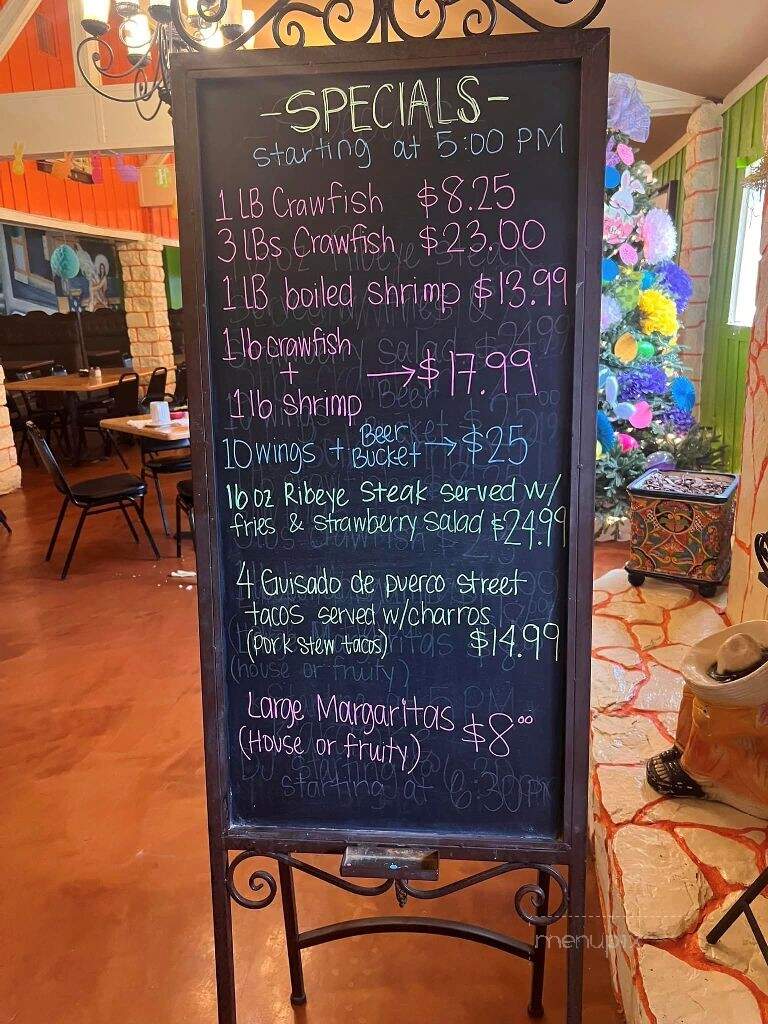 -SPECIALS-
starting at 5:00 PM
1 LB Crawfish $8.25
3 LBs Crawfish $23.00
1 LB boiled shrimp $13.99
1 lb crawfish
+ → $17.99
1 lb shrimp
10 wings + Beer Bucket → $25
16 oz Ribeye Steak served w/
fries & strawberry salad $24.99
4 Guisado de puerco street
tacos served w/charros
(pork stew tacos) $14.99
(house or fruity)
Large Margaritas $8.00
(House or fruity)
starting at 6:30 PM
menupix